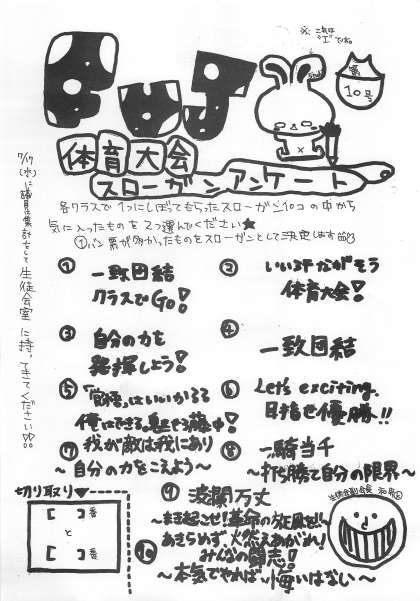 ※これは
"I"です。
FUJI
10号
体育大会
スローガンアンケート
各クラスで1つにしぼってもらったスローガン10コの中から
気に入ったものを2つ選んでください★
①番票が多かったものをスローガンとして決定します
7/17(水)に議員は集計をして生徒会室に持ってきてください!!
① 一致団結
クラスでGO!
② いい汗ながそう
体育大会!
③ 自分の力を
発揮しよう!
④ 一致団結
⑤ 「覚悟」はいいかるる
俺はできてる、魅せろ藤中!
⑥ Let's exciting.
目指せ優勝!!
⑦ 我が敵は我にあり
~自分の力をこえよう~
⑧ 一騎当千
~打ち勝て自分の限界~
⑨ 波瀾万丈
~まき起こせ!革命の旋風を!~
⑩ あきらめず、燃えあがれ!
みんなの闘志!
~本気でやれば悔いはない~
切り取り▼
[ ]番
と
[ ]番
生徒会副会長